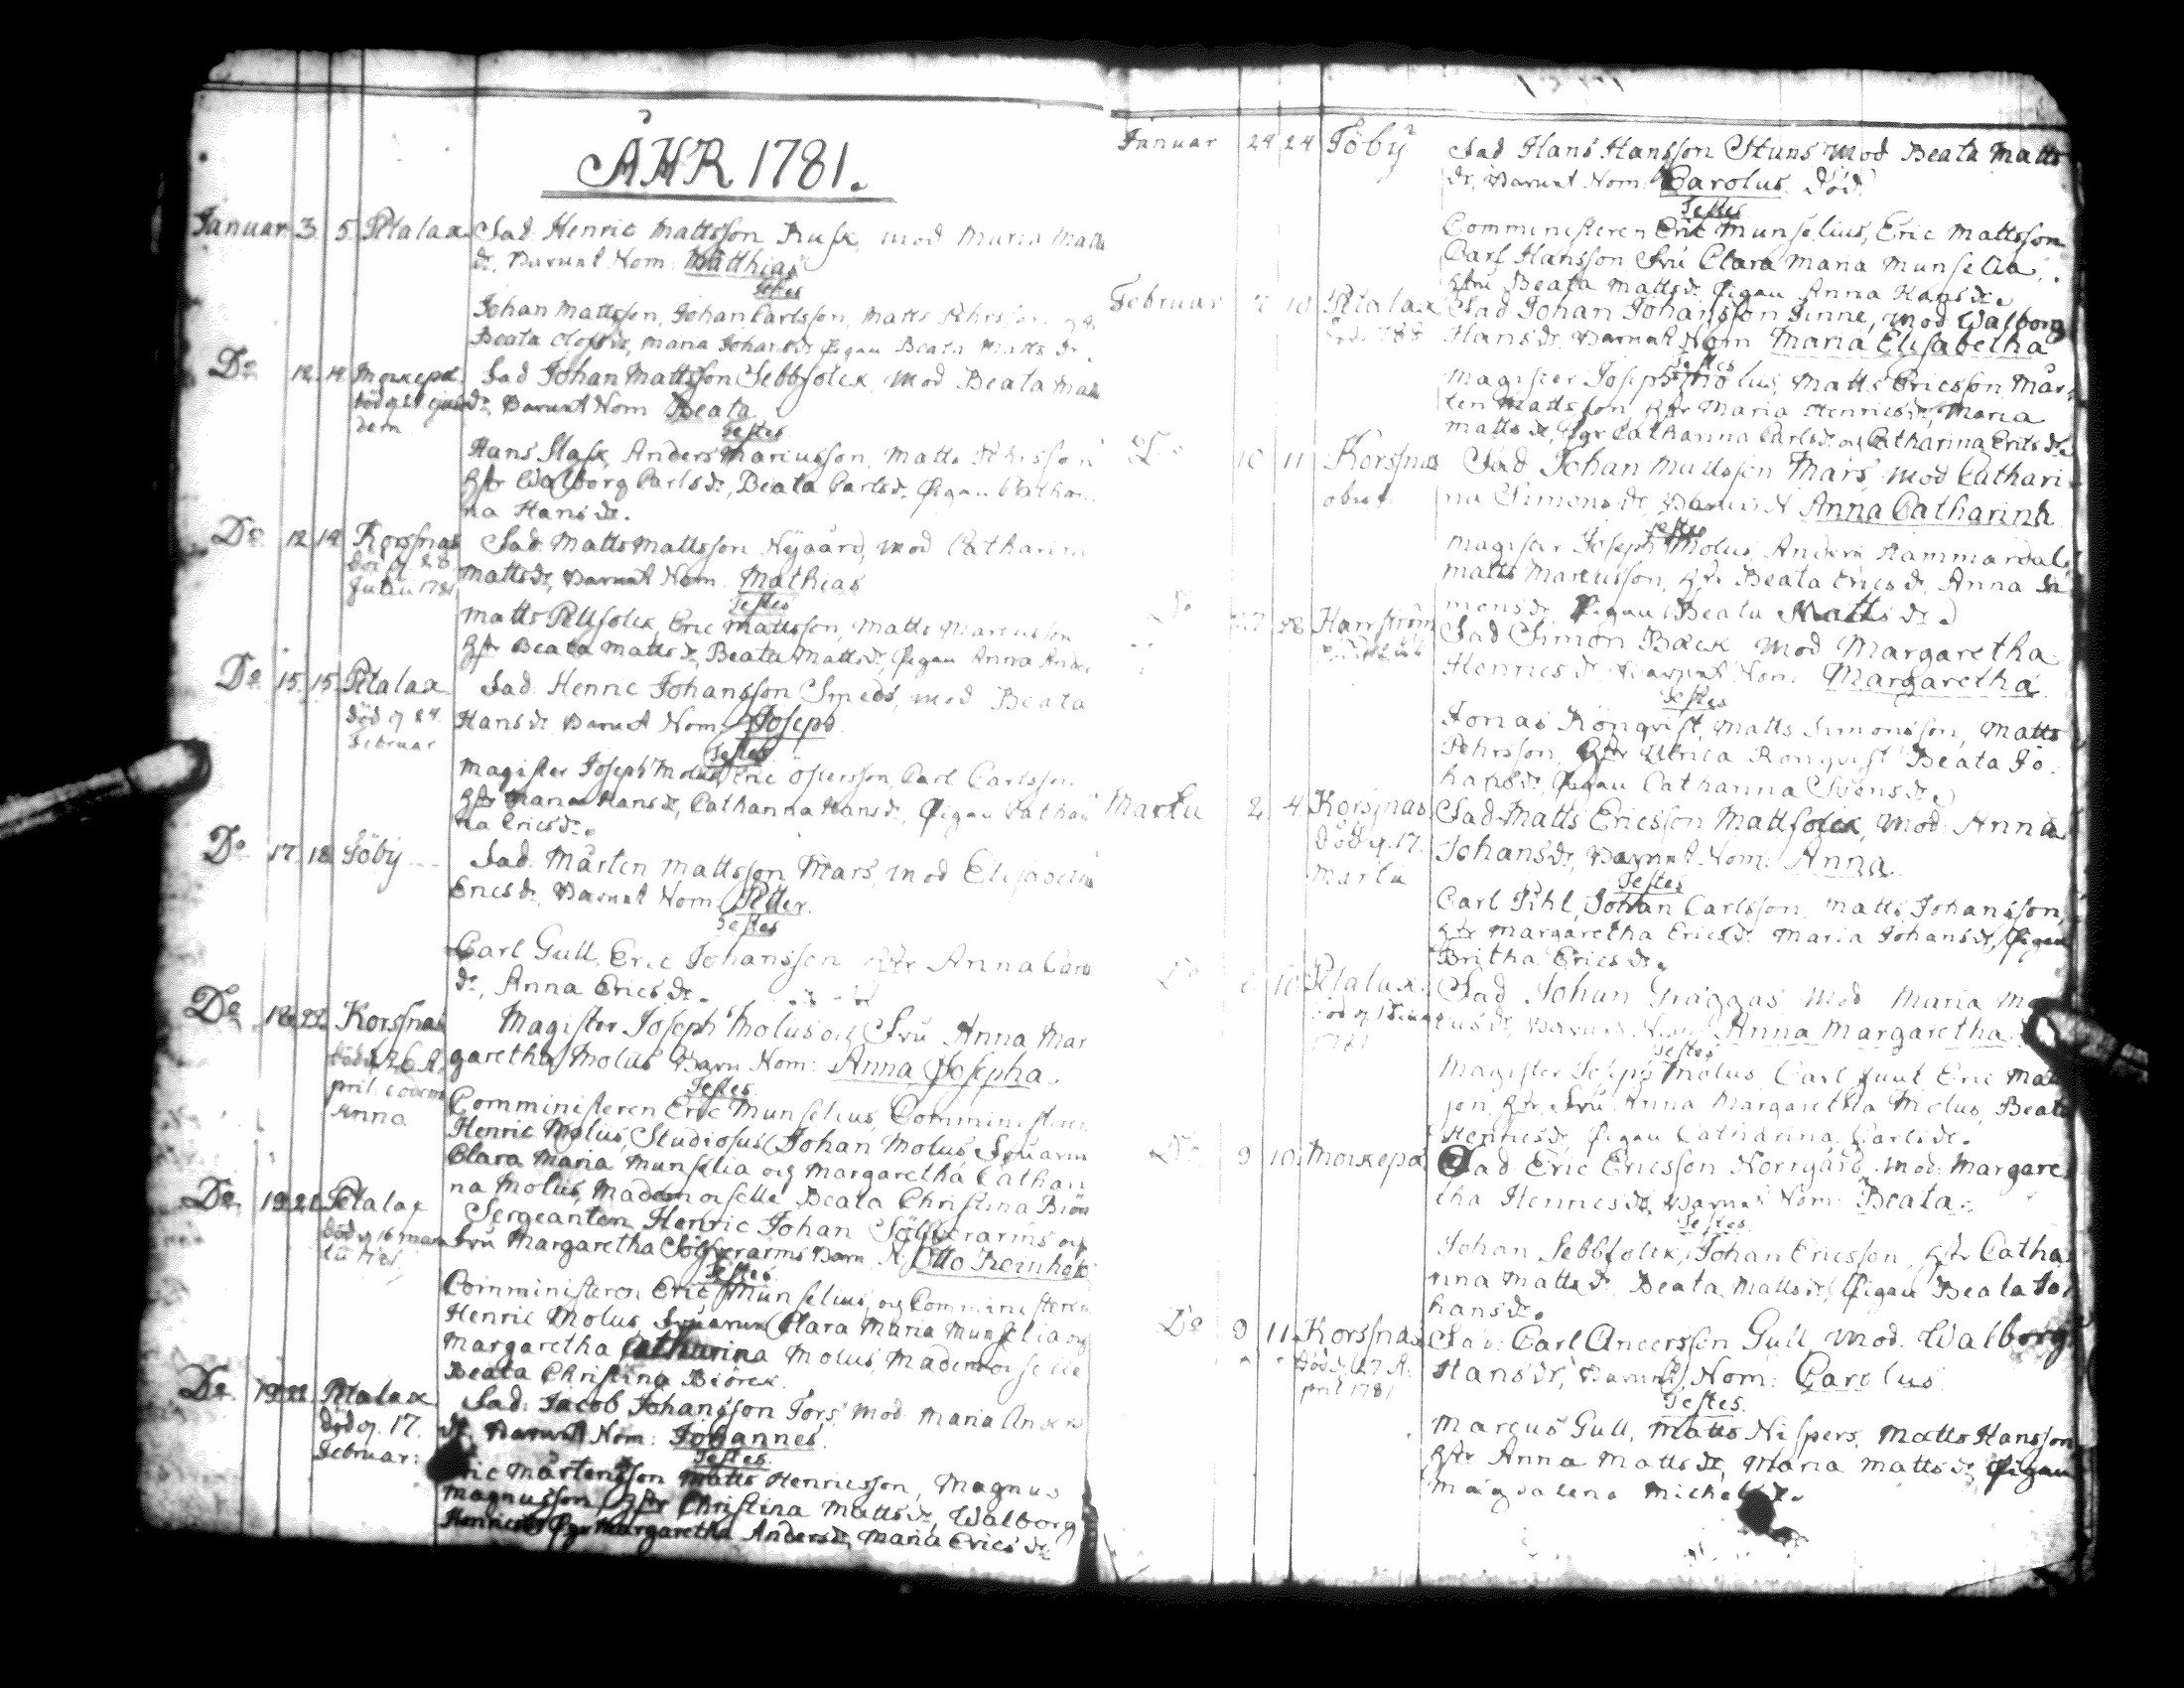 ÅHR 1781.
Januar. 3. 5. Petalax Sad. Henric Mattsson Rusk, mod Maria Matts
dr, Barnet Nom. Matthias
Testes
Johan Mattsson, Johan Carlsson, Matts Pehrsson
Beata Olofs dr, Maria Johans dr Pigan Beata Matts dr.
Do. 12. 14. Moikepä Sad Johan Mattsson Sebbfolck mod Beata Matts
död 21 ejusdem dr, Barnet Nom Beata
Testes
Hans Stask, Anders Marcusson, Matts Pehrsson
hstr Walborg Carls dr, Beata Carls dr. Pigan Catha
na Hans dr.
Do. 12 14 Korssnäs Sad. Matts Mattsson Nygård, mod Catharin
död 28 Julii 1781 Matts dr, Barnet Nom. Mathias
Testes
Matts Pellfolck, Eric Mattsson, Matts Marcusson
hstr Beata Matts dr, Beata Matts dr, Pigan Anna Ander
Do. 15. 15 Petalax Sad. Henric Johansson Smeds, mod Beata
död 24 Februar Hans dr Barnet Nom. Joseph
Testes
Magister Joseph Molus, Eric Östersson, Carl Carlsson
hstr Maria Hans dr, Catharina Hans dr, Pigan Cathari
na Erics dr.
Do 17. 18. Töby Sad. Mårten Mattsson Mars, mod Elisabeth
Erics dr, Barnet Nom. Petter.
Testes
Carl Gull, Eric Johansson hstr Anna Carls
dr, Anna Erics dr.
Do 18 22. Korssnäs Magister Joseph Molus och Fru Anna Mar
död 26 April eodem Anno garetha Molus Barn Nom: Anna Josepha.
Testes
Comministeren Eric Munselius, Comministeren
Henric Molus, Studiosus Johan Molus, Fruarna
Clara Maria Munselia och Margaretha Cathari
na Molus, Mademoiselle Beata Christina Biörk
Do. 19 21. Petalax Sergeanten Henric Johan Sölfverarms och
död 16 Fru Margaretha Sölfverarms Barn N. Otto Reinhold
Testes
Comministeren Eric Munselius, och Comministeren
Henric Molus, Fruarna Clara Maria Munselia och
Margaretha Catharina Molus, Mademoiselle
Beata Christina Biörck.
Do. 19 22. Petalax Sad. Jacob Johansson Fors, mod Maria Anders
död 17. Februar: dr. Barnet Nom: Johannes.
Testes
Eric Mårtensson Matts Henricsson, Magnus
Magnusson, hstr Christina Matts dr, Walborg
Henrics dr Pgr Margaretha Anders dr, Maria Erics dr
Januar 24 24 Töby Sad Hans Hansson Stuns mod Beata Matts
dr, Barnet Nom. Carolus. död.
Testes
Comministeren Eric Munselius, Eric Mattsson
Carl Hansson Fru Clara Maria Munselia,
hstru Beata Matts dr Pigan Anna Hans dr.
Februar 7 10 Petalax Sad Johan Johansson Finne, mod Walborg
Hans dr Barnet Nom Maria Elisabetha
Testes
Magister Joseph Molus, Matts Ericsson Mår
ten Mattsson, hstr Maria Henrics dr, Maria
Matts dr, Pgr Catharina Carls dr och Catharina Erics dr
Do 10 11 Korssnäs Sad Johan Mattsson Mars mod Cathari
obiit na Simons dr, Barnet N Anna Catharina
Testes
Magister Joseph Molus, Anders Hammardal
Matts Marcusson, hstr Beata Erics dr, Anna Si
mons dr, Pigan Beata Matts dr.
Do 27 28 Harrström Sad Simon Back mod Margaretha
Henrics dr Barnet Nom Margaretha
Testes
Jonas Rönqvist, Matts Simonsson, Matts
Pehrsson, hstr Ulrica Rönqvist Beata Jo
hans dr, Pigan Catharina Svens dr.
Martii 2 4 Korssnäs Sad Matts Ericsson Mattfolck, mod Anna
död 17. Martii Johans dr, Barnet Nom: Anna.
Testes
Carl Pihl, Johan Carlsson, Matts Johansson,
hstr Margaretha Erics dr Maria Johans dr, Pigan
Britha Erics dr.
Do 10 Petalax Sad Johan Gräggas mod Maria Mar
1781 cus dr, Barnet Nom Anna Margaretha.
Testes
Magister Joseph Molus, Carl Juul, Eric Matts
son, hstr Fru Anna Margaretha Molus, Beata
Henrics dr, Pigan Catharina Carls dr.
Do 9 10. Moikepä Sad. Eric Ericsson Norrgård, mod. Margare
tha Henrics dr, Barnet Nom: Beata.
Testes
Johan Sebbfolck, Johan Ericsson, hstr Catha
rina Matts dr, Beata Matts dr, Pigan Beata Jo
hans dr.
Do 9 11. Korssnäs Sad: Carl Andersson Gull mod. Walborg
död 27 April 1781 Hans dr, Barnet Nom: Carolus
Testes.
Marcus Gull, Matts Nispers, Matts Hansson
hstr Anna Matts dr, Maria Matts dr, Pigan
Magdalena Michels dr.